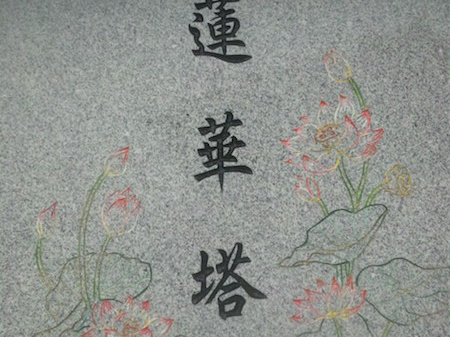 蓮華塔